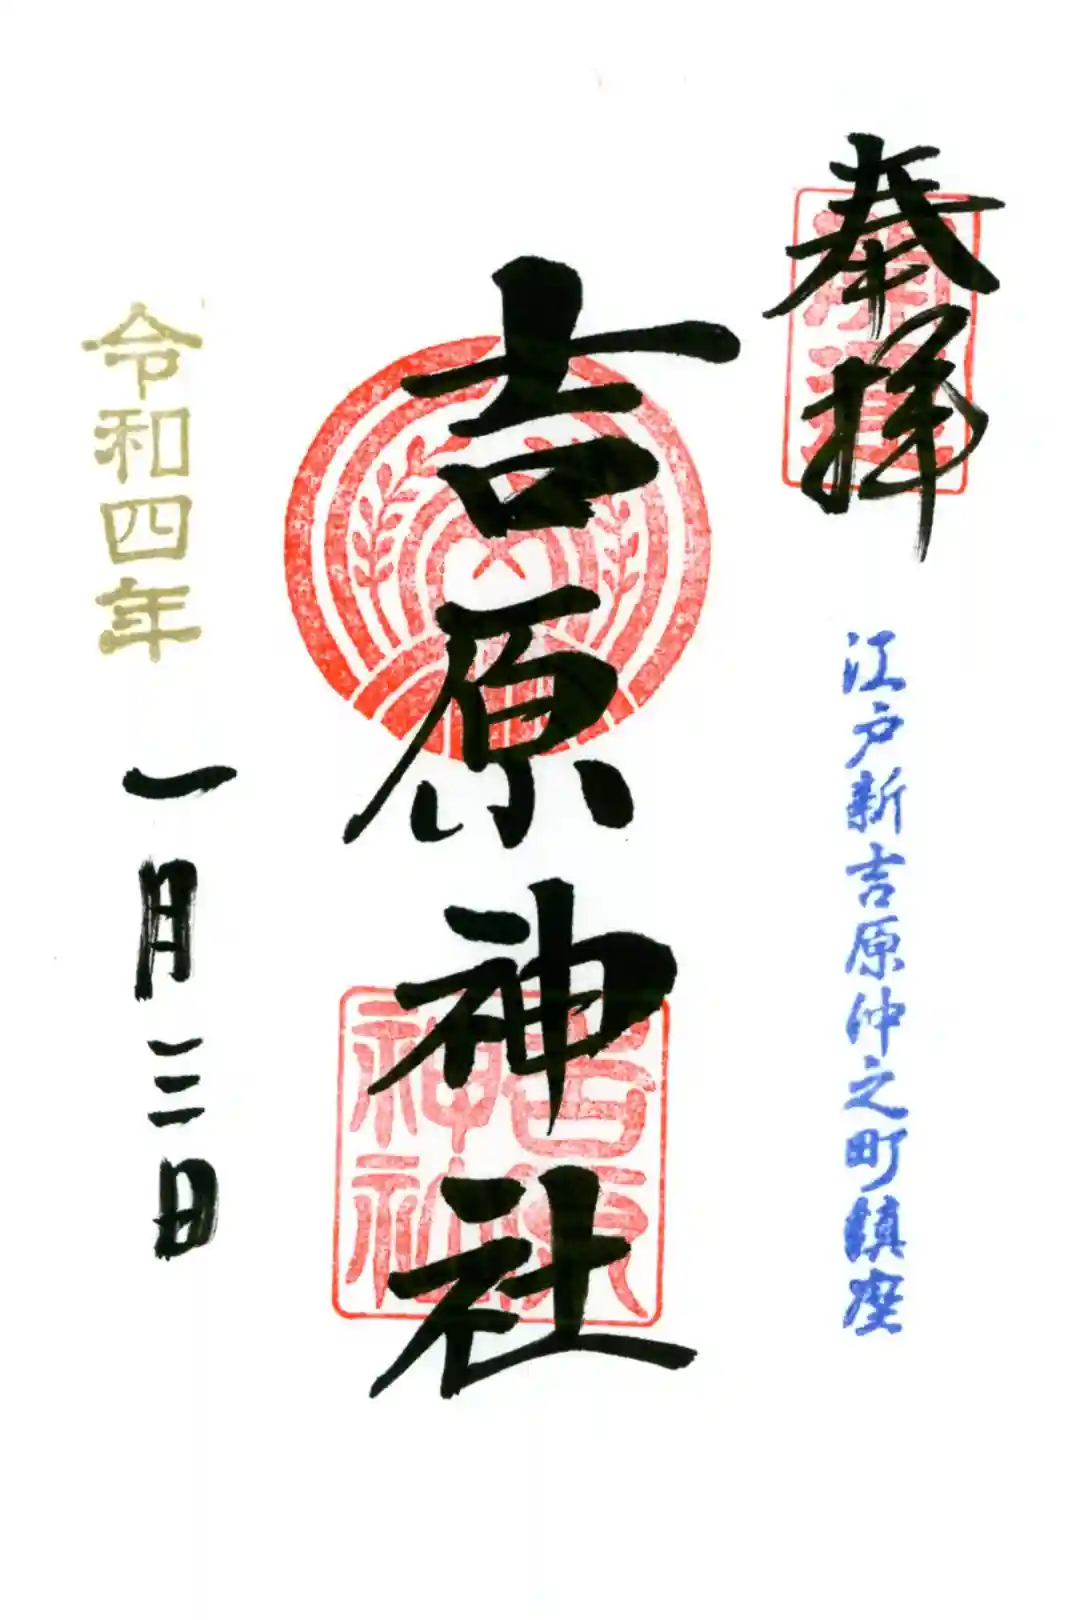 奉拝
江戸新吉原仲之町鎮座
吉原神社
吉原
神社
令和四年
一月三日